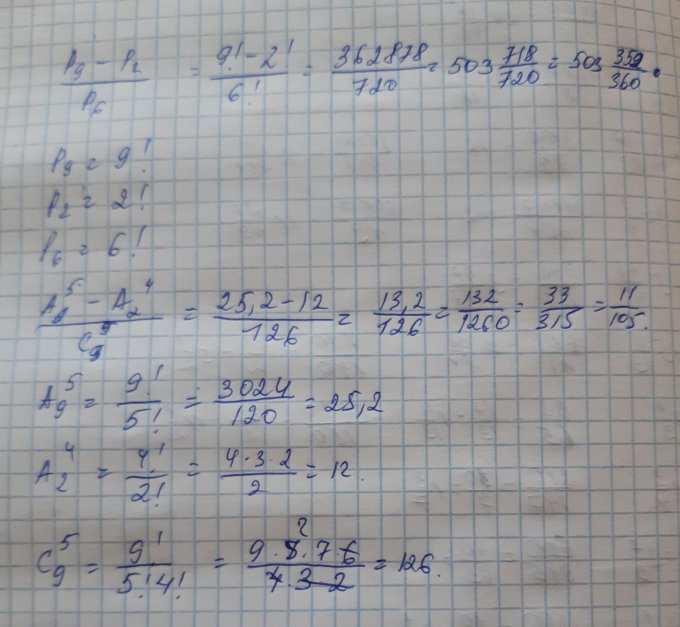 (P₉ - P₂)/P₆ = (9! - 2!)/6! = 362878/720 = 503 718/720 = 503 359/360.
P₉ = 9!
P₂ = 2!
P₆ = 6!
(A₉⁵ - A₂⁴)/C₉⁵ = (25,2 - 12)/126 = 13,2/126 = 132/1260 = 33/315 = 11/105.
A₉⁵ = 9!/5! = 3024/120 = 25,2
A₂⁴ = 4!/2! = (4·3·2)/2 = 12.
C₉⁵ = 9!/(5!4!) = (9·8·7·6)/(4·3·2) = 126.